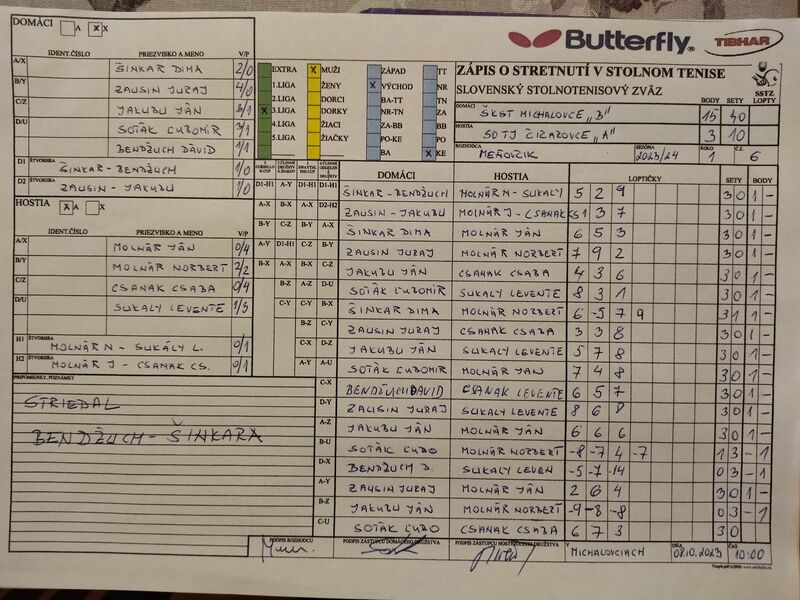 DOMÁCI A X
Butterfly TIBHAR
IDENT.ČÍSLO PRIEZVISKO A MENO V/P
A/X ŠINKAR DIMA 2/0
B/Y ZAUSIN JURAJ 4/0
C/Z JAKUBU JÁN 3/1
D/U SOTÁK ĽUBOMÍR 3/1
BENDŽUCH DÁVID 1/1
D1 ŠTVORHRA ŠINKAR - BENDŽUCH 1/0
D2 ŠTVORHRA ZAUSIN - JAKUBU 1/0
EXTRA X MUŽI ZÁPAD TT
1.LIGA ŽENY X VÝCHOD NR
2.LIGA DORCI BA-TT TN
X 3.LIGA DORKY NR-TN ZA
4.LIGA ŽIACI ZA-BB BB
5.LIGA ŽIAČKY KE-PO PO
BA X KE
ZÁPIS O STRETNUTÍ V STOLNOM TENISE
SLOVENSKÝ STOLNOTENISOVÝ ZVÄZ
SSTZ
BODY SETY LOPTY
DOMÁCI ŠKST MICHALOVCE "B" 15 40
HOSTIA SOTJ ČIŽATOVCE "A" 3 10
ROZHODCA MEŇOVZIK SEZÓNA 2023/24 KOLO 1 Č.Z. 6
HOSTIA X A X
IDENT.ČÍSLO PRIEZVISKO A MENO V/P
A/X MOLNÁR JÁN 0/4
B/Y MOLNÁR NORBERT 2/2
C/Z CSANAK CSABA 0/4
D/U SUKALY LEVENTE 1/3
H1 ŠTVORHRA MOLNÁR N - SUKÁLY L. 0/1
H2 ŠTVORHRA MOLNÁR J - CSANAK CS. 0/1
PRIPOMIENKY, POZNÁMKY
STRIEDAL
BENDŽUCH - ŠINKARA
DOMÁCI HOSTIA LOPTIČKY SETY BODY
ŠINKAR - BENDŽUCH MOLNÁR N - SUKALY 5 2 9 3 0 1 -
ZAUSIN - JAKUBU MOLNÁR J - CSANAK CS 1 3 7 3 0 1 -
ŠINKAR DIMA MOLNÁR JÁN 6 5 3 3 0 1 -
ZAUSIN JURAJ MOLNÁR NORBERT 7 9 2 3 0 1 -
JAKUBU JÁN CSANAK CSABA 4 3 6 3 0 1 -
SOTÁK ĽUBOMÍR SUKALY LEVENTE 8 3 1 3 0 1 -
ŠINKAR DIMA MOLNÁR NORBERT 6 -5 7 9 3 1 1 -
ZAUSIN JURAJ CSANAK CSABA 3 3 8 3 0 1 -
JAKUBU JÁN SUKALY LEVENTE 5 7 8 3 0 1 -
SOTÁK ĽUBOMÍR MOLNÁR JÁN 7 4 8 3 0 1 -
C-X BENDŽUCH DÁVID CSANAK LEVENTE 6 5 7 3 0 1 -
D-Y ZAUSIN JURAJ SUKALY LEVENTE 8 6 8 3 0 1 -
A-Z JAKUBU JÁN MOLNÁR JÁN 6 6 6 3 0 1 -
B-U SOTÁK ĽUBO MOLNÁR NORBERT -8 -7 4 -7 1 3 - 1
D-X BENDŽUCH D. SUKALY LEVEN -5 -7 -14 0 3 - 1
A-Y ZAUSIN JURAJ MOLNÁR JÁN 2 6 4 3 0 1 -
B-Z JAKUBU JÁN MOLNÁR NORBERT -9 -8 -8 0 3 - 1
C-U SOTÁK ĽUBO CSANAK CSABA 6 7 3 3 0
PODPIS ROZHODCU PODPIS ZÁSTUPCU DOMÁCEHO DRUŽSTVA PODPIS ZÁSTUPCU HOSŤUJÚCEHO DRUŽSTVA V MICHALOVCIACH DŇA 07.10.2023 ČAS 10:00